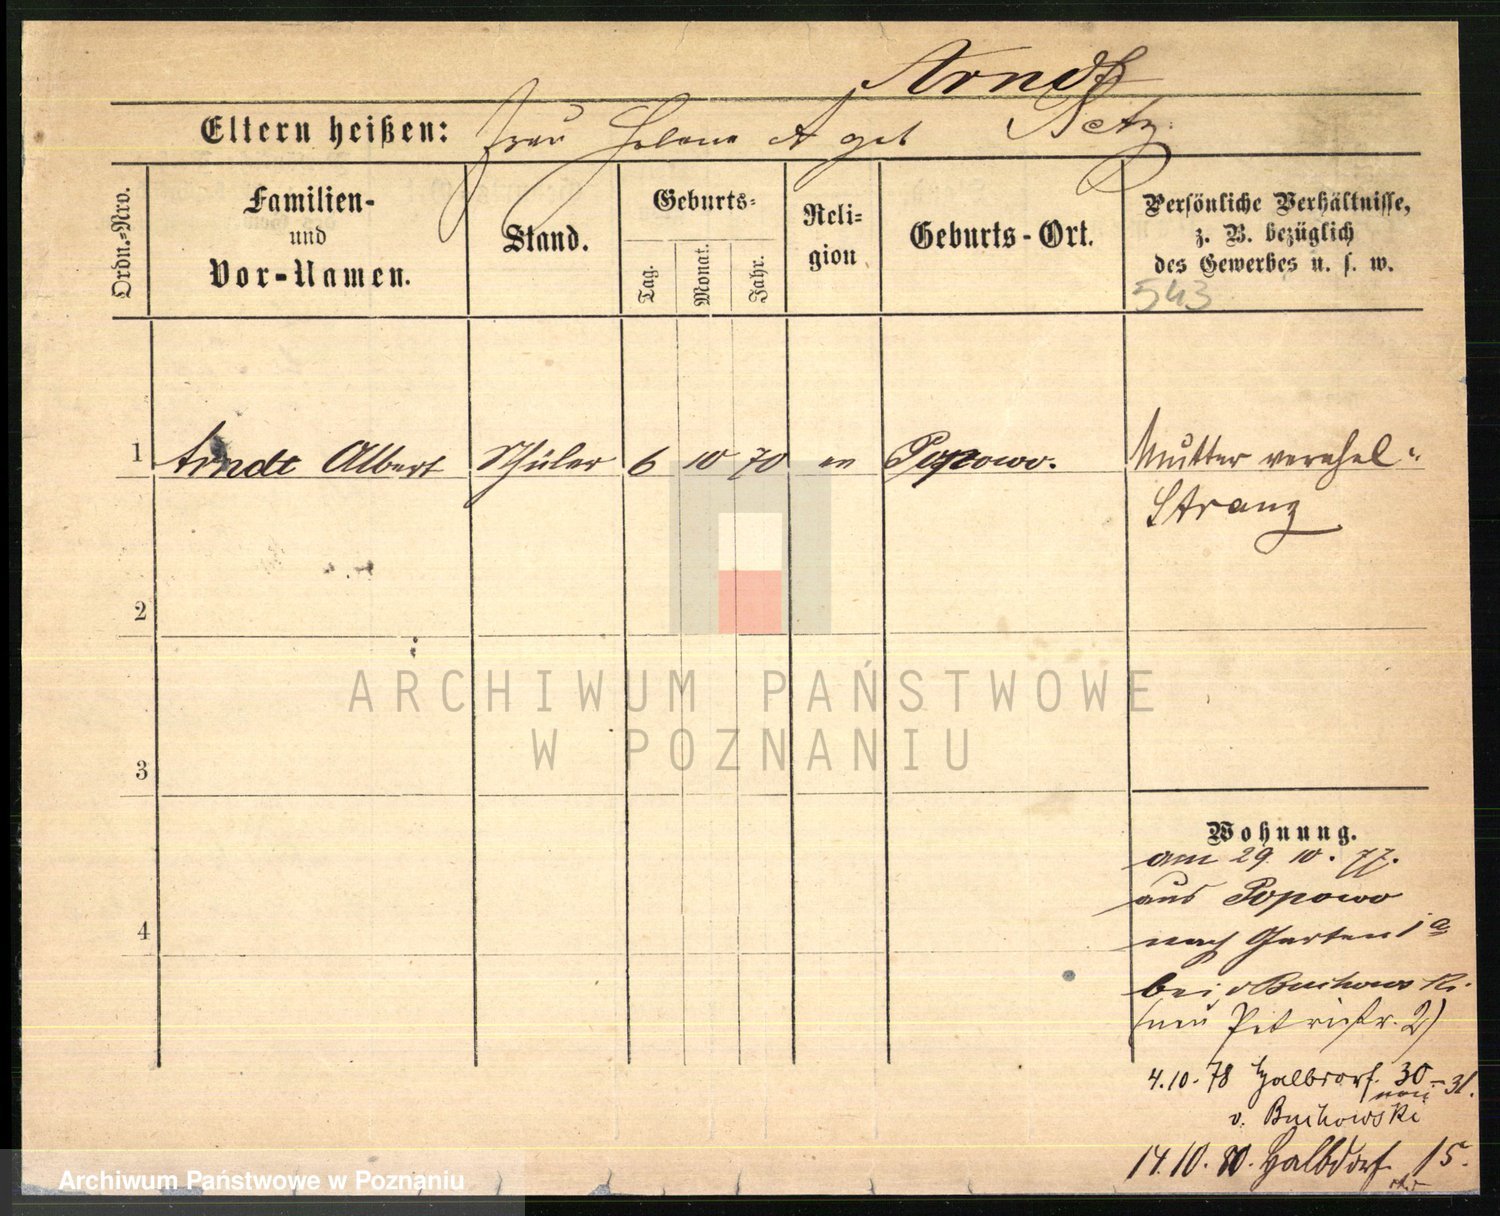 Arndt
Eltern heißen: Frau Helene A geb Betz
Ordn.-Nro.
Familien-
und
Vor-Namen.
Stand.
Geburts-
Tag.
Monat.
Jahr.
Reli-
gion
Geburts-Ort.
Persönliche Verhältnisse,
z. B. bezüglich
des Gewerbes u. s. w.
543
1 Arndt Albert Schüler 6 10 70 ev Popowo. Mutter verehel.
Stranz
2
3
4
Wohnung.
am 29. 10. 77.
aus Popowo
nach Garten 1a
bei v Buchowski.
(neu Petristr. 2)
4.10.78 Halbdorf. 30-31.
neu
v. Buchowski
14.10.80. Halbdorf. 15.
ARCHIWUM PAŃSTWOWE
W POZNANIU
Archiwum Państwowe w Poznaniu